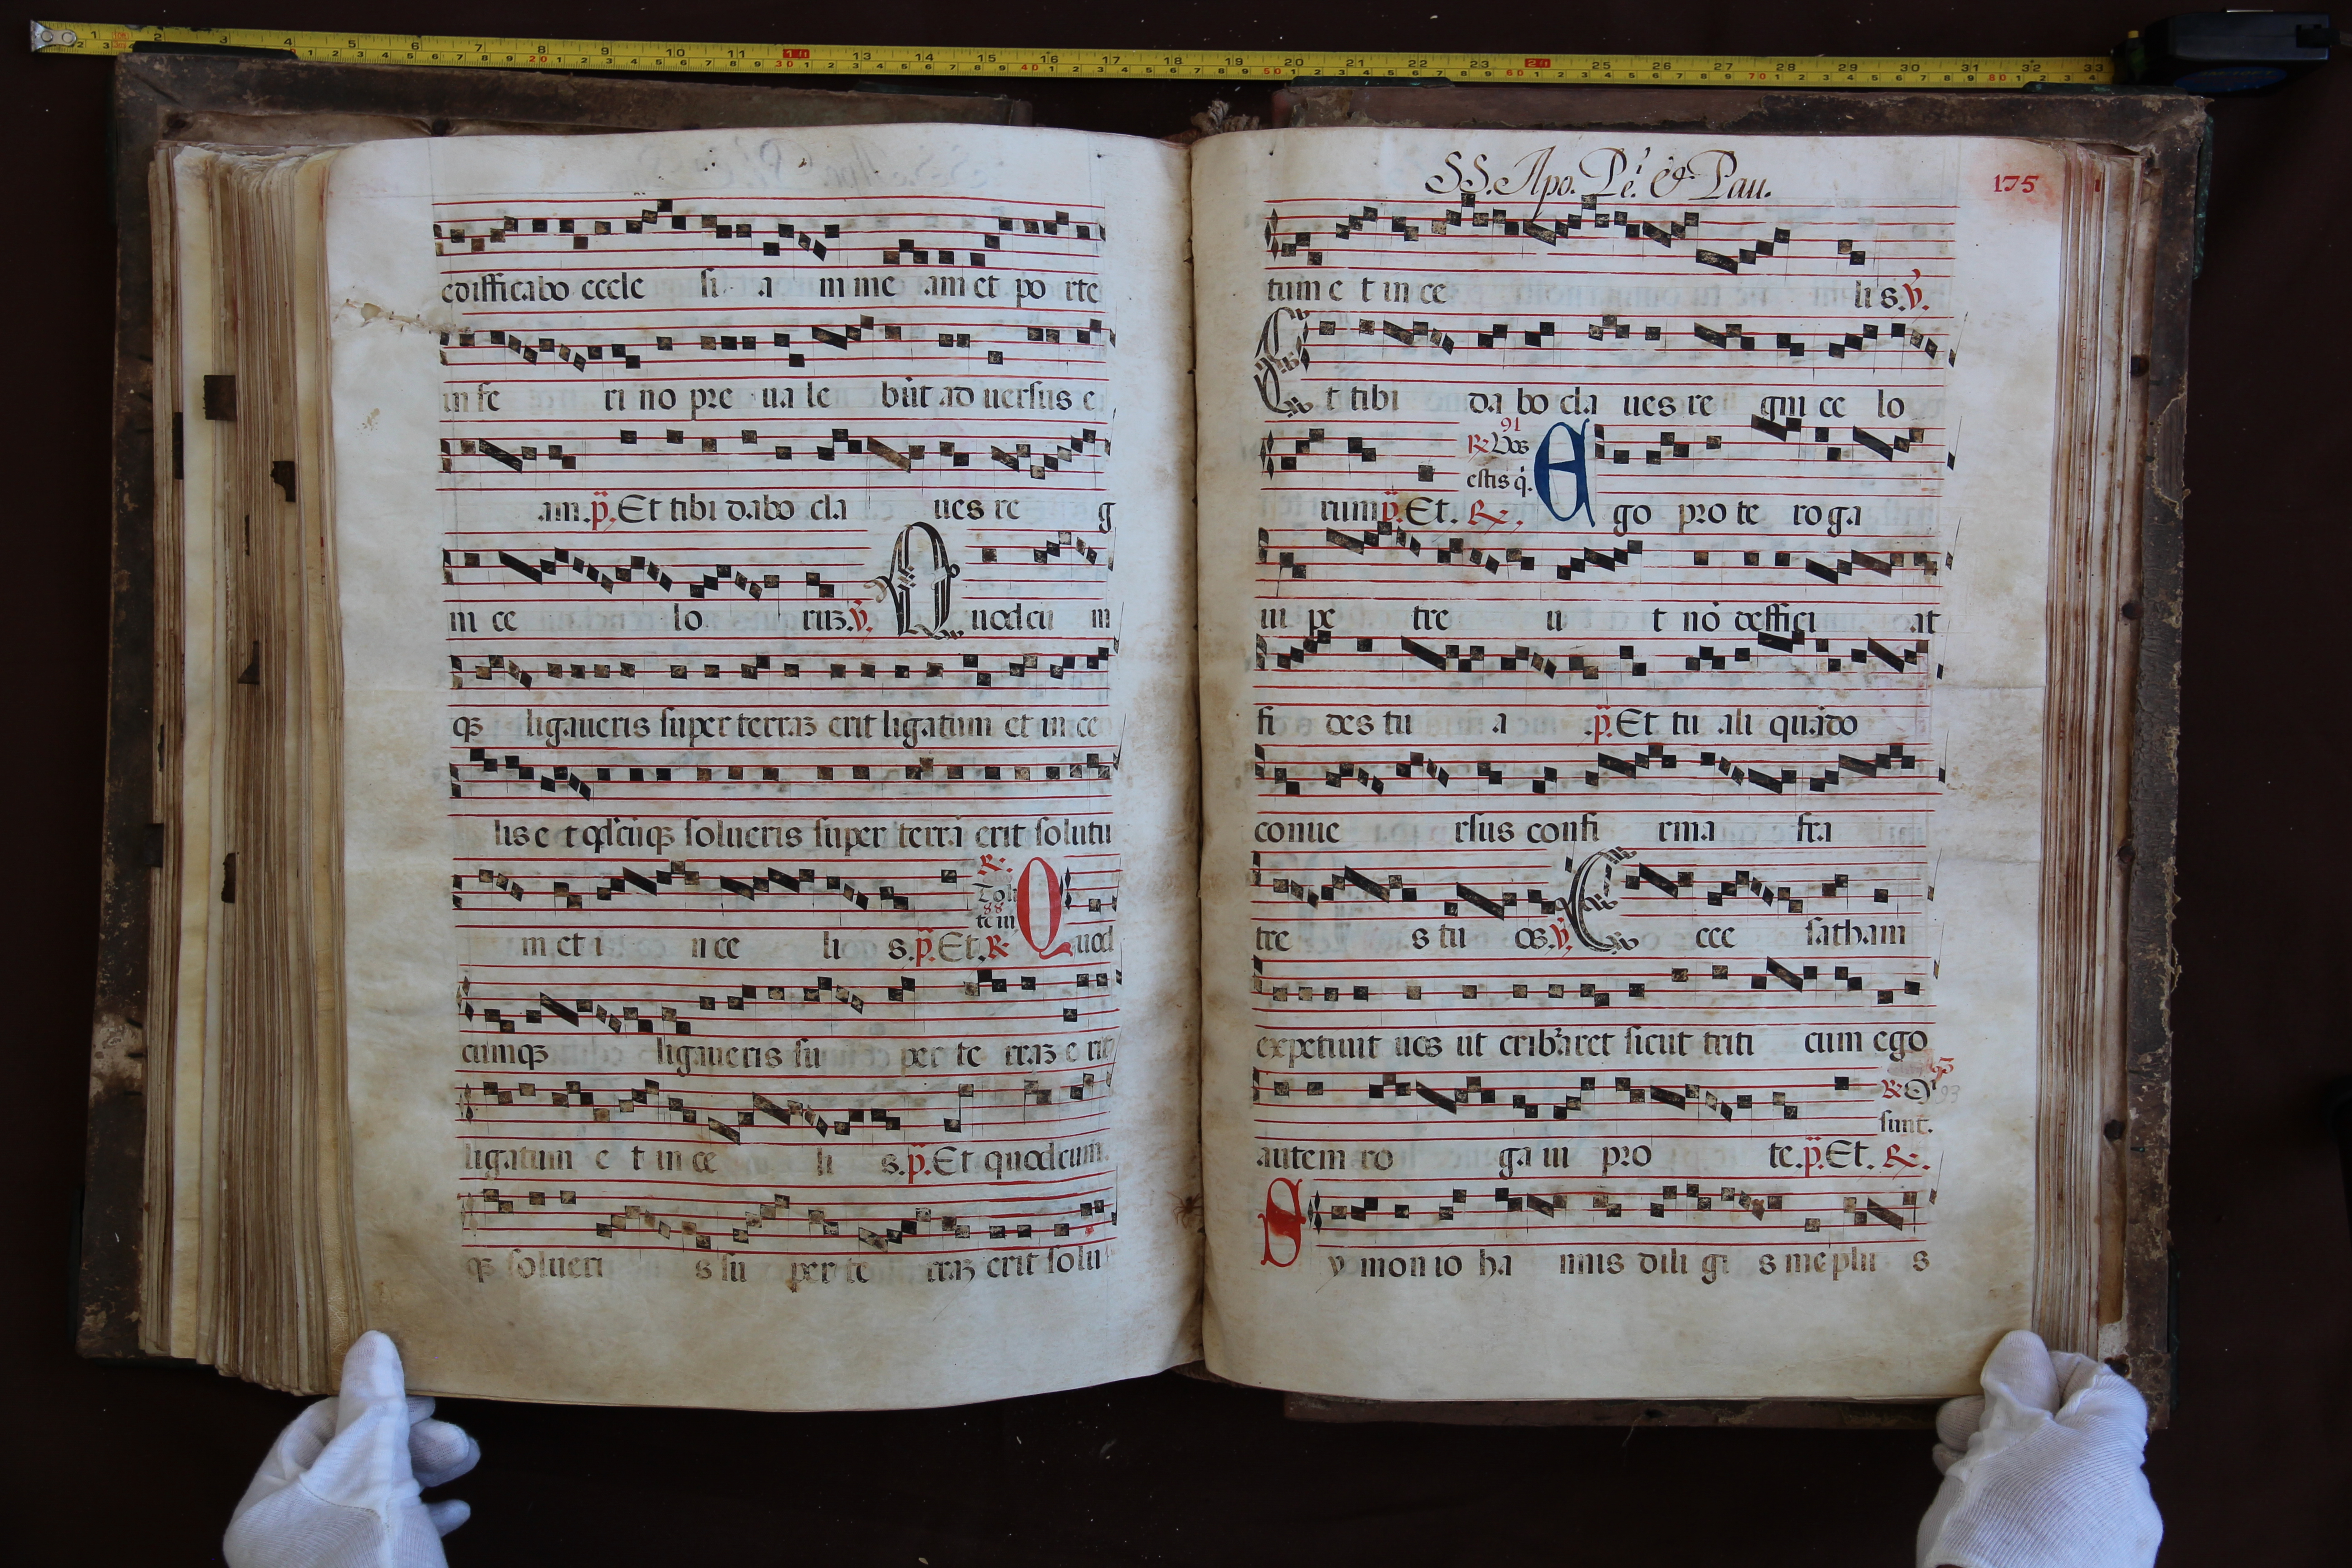 edifficabo eccle si a m me am et po rte
in fe ri no pre ua le būt ad uersus e
am. p̈. Et tibi dabo cla ues re g
ni ce lo ruꝫ. v̄. Quodcu m
qꝫ ligaueris super terraꝫ erit ligatum et in ce
lis e t qđcūqꝫ solueris super terrā erit solutu
m et i n ce li s. p̈. Et. ℟. Quod
cumqꝫ ligaueris su per te rraꝫ e rit
ligatum e t in ce li s. p̈. Et quodcum
qꝫ solueri s su per te rraꝫ erit solu
SS. Apo. Pe.ͥ & Pau.
175
tum e t in ce li s. v̄.
Et tibi da bo cla ues re gni ce lo
91
℟ Vos
estis q̇.
rum p̈. Et. ℟. Ego pro te roga
ui pe tre u t nō deffici at
fi des tu a p̈. Et tu ali quādo
conue rsus confi rma fra
tre s tu os. v̄. Ecce satham
expetiuit uos ut cribaret sicut triti cum ego
93
℟
sunt.
autem ro ga ui pro te. p̈. Et. ℟.
Sy mon io ha nnis dili gi s me plu s